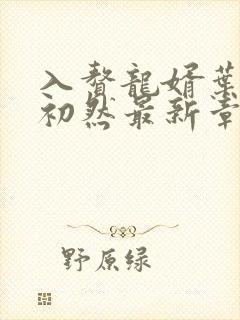 入贅龍婿葉
初然最新章
野原绿